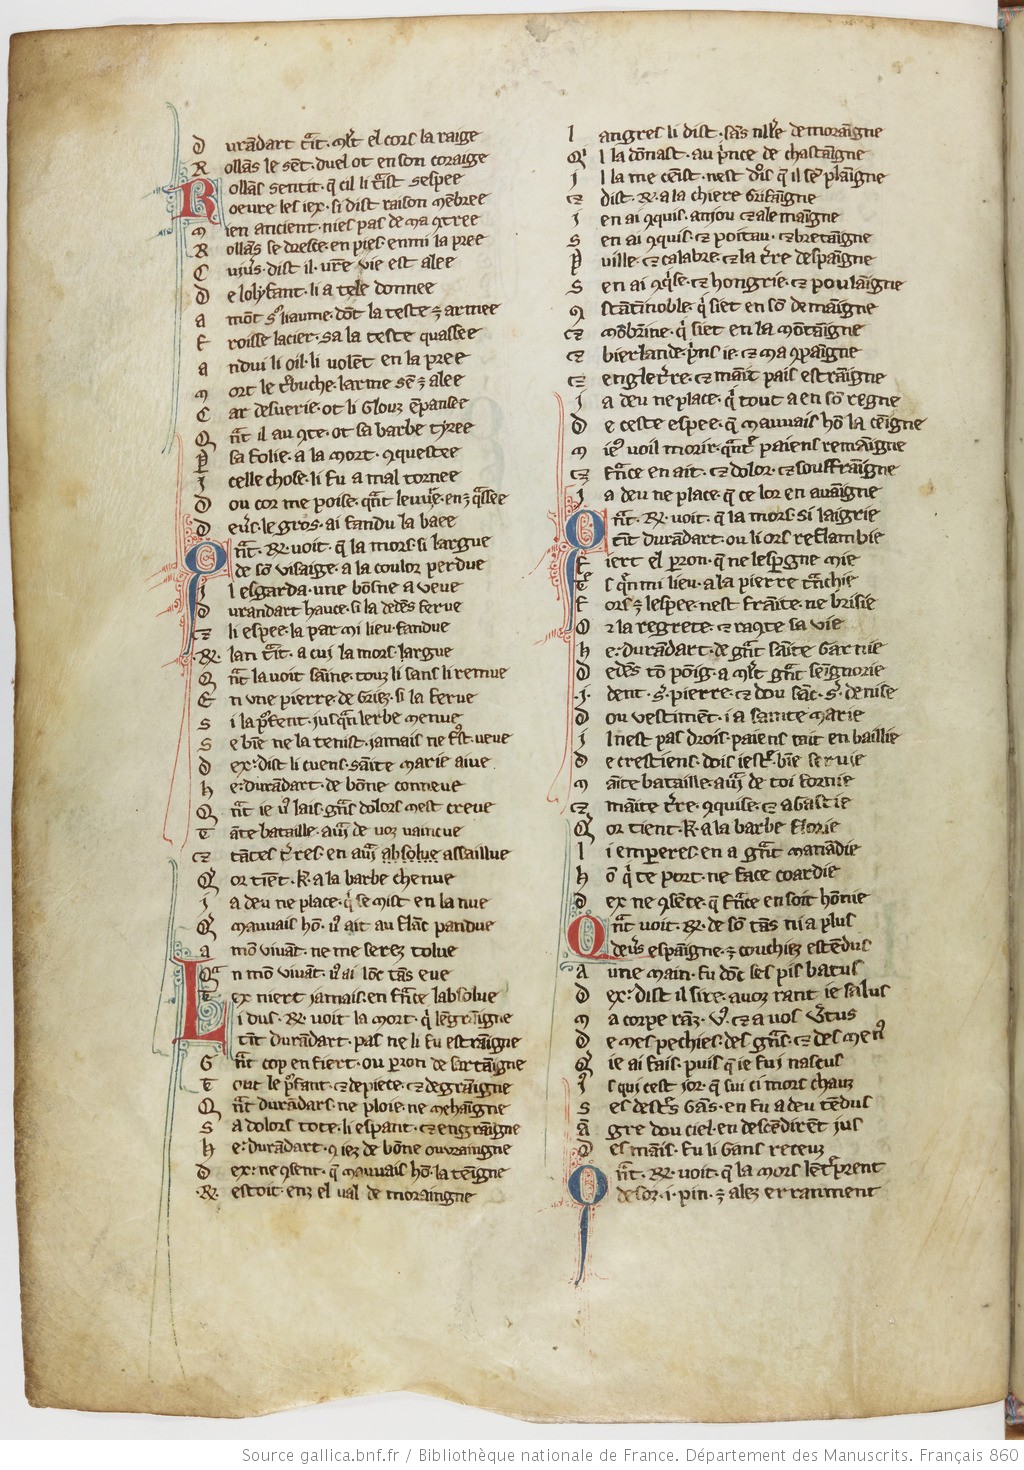 D urãdart t̃it · mlt̃ el cors la raige
R ollãs le sẽt · duel ot en son coraige
R ollãs sentit · q̃ cil li t̃ist sespee
oeure les iex · si dist raison mẽbree
m ien ancient · nies pas de ma ꝯtree
R ollãs se dresce · en pies enmi la pree
C uiũs · dist il · ur̃e vie est alee
D e lolyfant · li a tele donnee
a mõt s' liaume · dõt la teste ⁊ armee
F roisse lacier · sa la teste quassee
a ndui li oil · li volẽt en la pree
m ort le t̃buche · larme sẽ ⁊ alee
C ar desuerie · ot li glouz ẽpansee
Q ñt il au ꝯte · ot sa barbe tyree
P sa folie · a la mort · ꝯquestee
I celle chose · li fu a mal tornee
D ou cor me poise · q̃nt
D eũs · le gros · ai fandu la baee
Q ñt · R̃ · voit · q̃ la mors · si largue
de sõ visaige · a la coulor perdue
I l esgarda · une bõsne a veue
D urandart hauce · si la dedẽs ferue
⁊ li espee · la par mi lieu · fandue
R̃ · lan t̃it · a cui la mors · largue
Q ñt la voit saĩne · touz li sans li remue
E n vne pierre · de griez · si la ferue
S i la p̃fent · jusq̃n lerbe menue
S e biẽ ne la tenist · jamais ne f'st veue
D ex: dist li cuens · sãite marie aiue
H e: durãdart · de bõne conneue
Q ñt ie v' lais · gñs dolors mest creue
T ãte bataille · aurai de voz vaincue
⁊ tãtes t̃res · en aurai absolue assaillue
Q or tiẽt · K̃ · a la barbe chenue
I a deu ne place · q̃ se mist en la nue
Q mauvais hõ · v' ait au flãc pandue
A mõ vivãt · ne me serez tolue
Q̃ n mõ vivãt · v' ai lõc tãs eue
T ex niert jamais · en f̃ice labsolue
L i dus · R̃ · voit la mort · q̃ lẽgraĩgne
t̃it durãdart · pas ne li fu estraĩgne
G ñt cop en fiert · ou perron de sartaĩgne
T out le p̃fant · ⁊ depiece · ⁊ degraĩgne
Q ñt durãdars · ne ploie · ne mehaĩgne
S a dolors tote · li espant · ⁊ engraĩgne
H e: durãdart · ꝯ iez de bõne ouvraingne
D ex: ne ꝯsent · q̃ mauvais hõ · la tẽigne
· R̃ · estoit · enz el val de moraingne
l angres li dist · sãs nlle demoraĩgne
Q' l la dõnast · au p'nce de chastaĩgne
I l la me cẽist · nest dõs q̃ il sẽ plaĩgne
⁊ dist · R̃ · a la chiere grifaĩgne
I en ai ꝯquis · anjou ⁊ alemaigne
S en ai ꝯquis · ⁊ poitau · ⁊ bretaigne
P uille · ⁊ calabre · ⁊ la t̃re despaĩgne
S en ai ꝯq̃se · ⁊ hongrie · ⁊ poulaĩgne
ꝯ stãtinoble · q̃ siet en sõ demaĩgne
⁊ mõbrine · q̃ siet en la mõtaĩgne
⁊ bierlande · p̃ns ie · ⁊ ma ꝯpaĩgne
⁊ englet̃re · ⁊ maĩt pais estraĩgne
I a deu ne place · q̃ tout a en sõ regne
D e ceste espee · q̃ mauvais hõ la cẽigne
m ie' voil morir · q̃ntr̃ paiens remaĩgne
⁊ f̃ice en ait · ⁊ dolor · ⁊ souffraĩgne
I a deu ne place · q̃ ce lor en avaĩgne
Q ñt · R̃ · voit · q̃ la mors · si laigrie
t̃it durãdart · ou li ors reflambie
F iert el perron · que ne lespergne mie
T̃ s q̃nmi lieu · a la pierre t̃nchie
F ors ⁊ lespee · nest fraite · ne brisie
O r la regrete · ⁊ raꝯte sa vie
H e: durãdart · de gñt saĩte garnie
D edẽs tõ põig · a mlt̃ gñt seĩgnorie
· I · dent · s' · pierre · ⁊ dou sãc · s' · denise
D ou vestimẽt · i a sainte marie
I l nest pas drois · paiens tait en baillie
D e crestiens · dois iestr̃ · biẽ servie
m aĩte bataille · aurai de toi fornie
⁊ maĩte t̃re · ꝯquise · ⁊ agastie
Q or tient · K̃ · a la barbe florie
L i emperes · en a gñt manãdie
H õ q̃ te port · ne face coardie
D ex ne ꝯsẽte · q̃ f̃ice en soit hõnie
Q ñt voit · R̃ · de sõ tãs ni a plus
deũs espaĩgne · ⁊ couchiez estẽdus
A une main · fu dõc ses pis batus
D ex: dist il sire · avoz rant ie salus
m a corpe rãz · v' · ⁊ a vos v̾tus
D e mes pechies · des gñs · ⁊ des men'
Q ie ai fais · puis q̃ ie fui nascus
I' s qui cest jor · q̃ sui ci mors chauz
S es destr̃s gãns · en fu a deu tẽdus
ã gre dou ciel · en descẽdirẽt jus
D es maĩs · fu li gans receuz
Q ñt · R̃ · voit · q̃ la mors lẽtreprent
desoz · i · pin · ⁊ alez erranment
Source gallica.bnf.fr / Bibliothèque nationale de France. Département des Manuscrits. Français 860